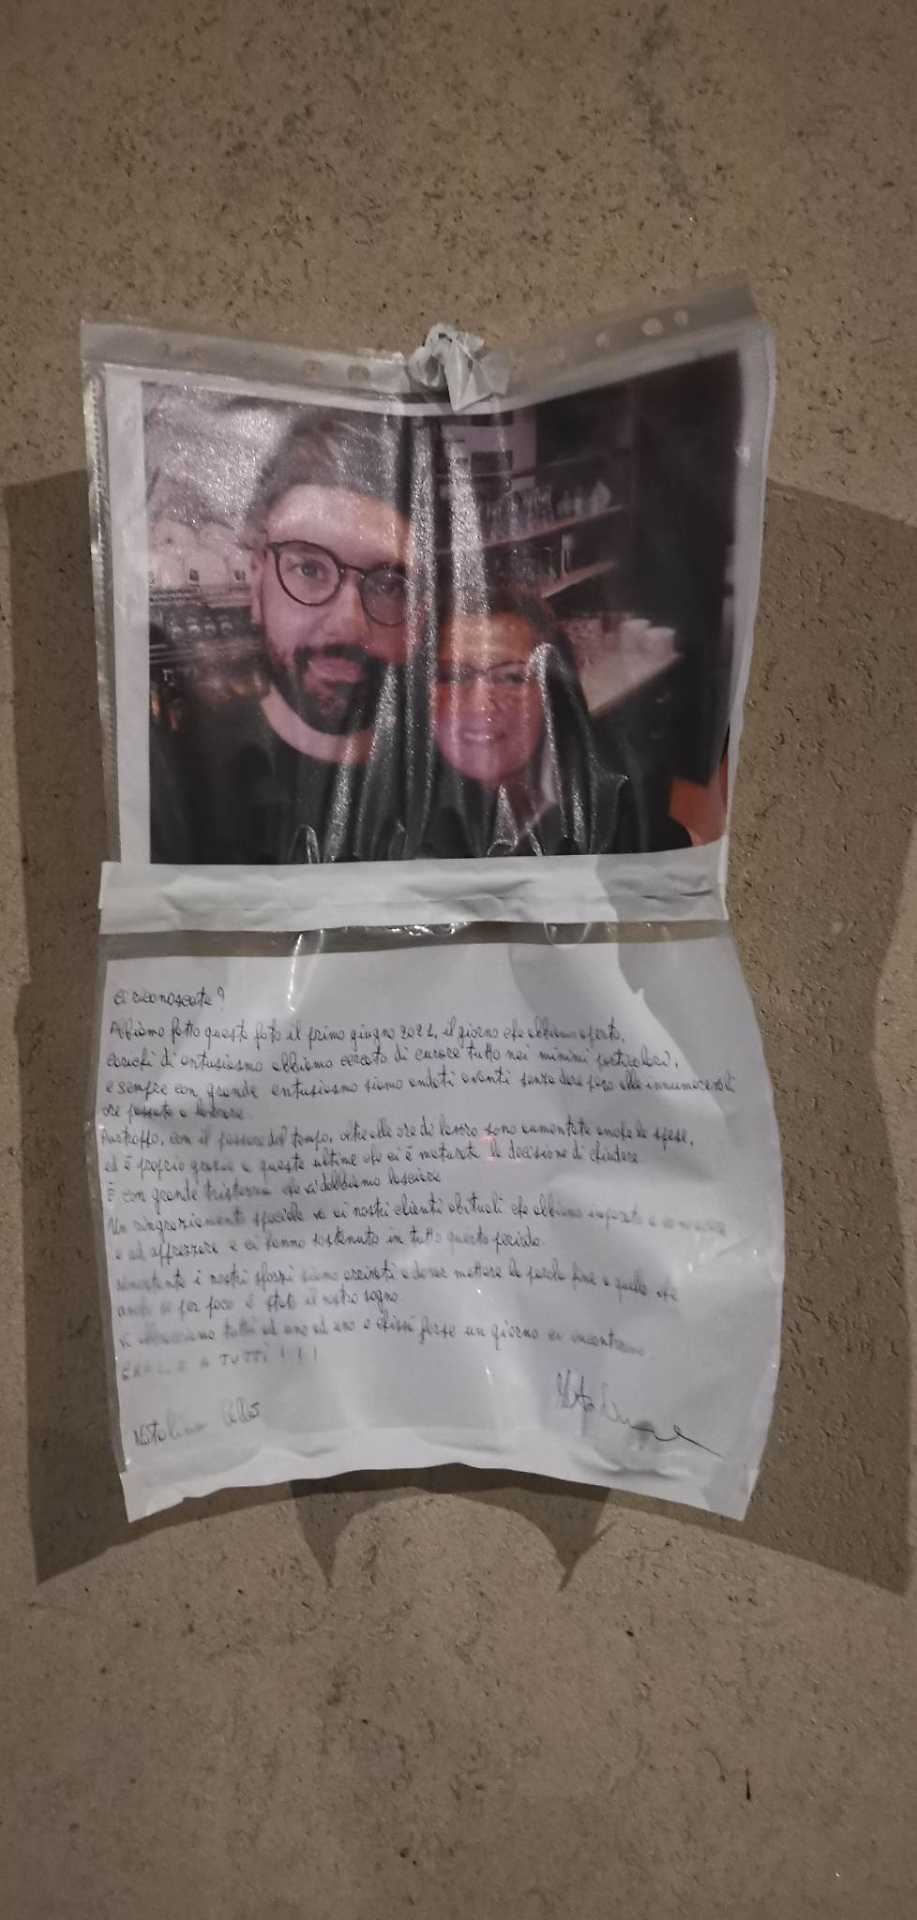 Ci riconoscete?
Abbiamo fatto questa foto il primo giugno 2021, il giorno che abbiamo aperto,
carichi di entusiasmo abbiamo cercato di curare tutto nei minimi particolari,
e sempre con grande entusiasmo siamo andati avanti senza dare peso alle innumerevoli
ore passate a lavorare.
Purtroppo, con il passare del tempo, oltre alle ore di lavoro sono aumentate anche le spese,
ed è proprio grazie a queste ultime che si è maturata la decisione di chiudere.
È con grande tristezza che vi dobbiamo lasciare
Un ringraziamento speciale va ai nostri clienti abituali che abbiamo imparato a conoscere
e ad apprezzare e ci hanno sostenuto in tutto questo periodo
nonostante i nostri sforzi siamo arrivati a dover mettere la parola fine a quello che
anche se per poco è stato il nostro sogno
Vi abbracciamo tutti ad uno ad uno e chissà forse un giorno ci
GRAZIE A TUTTI !!!